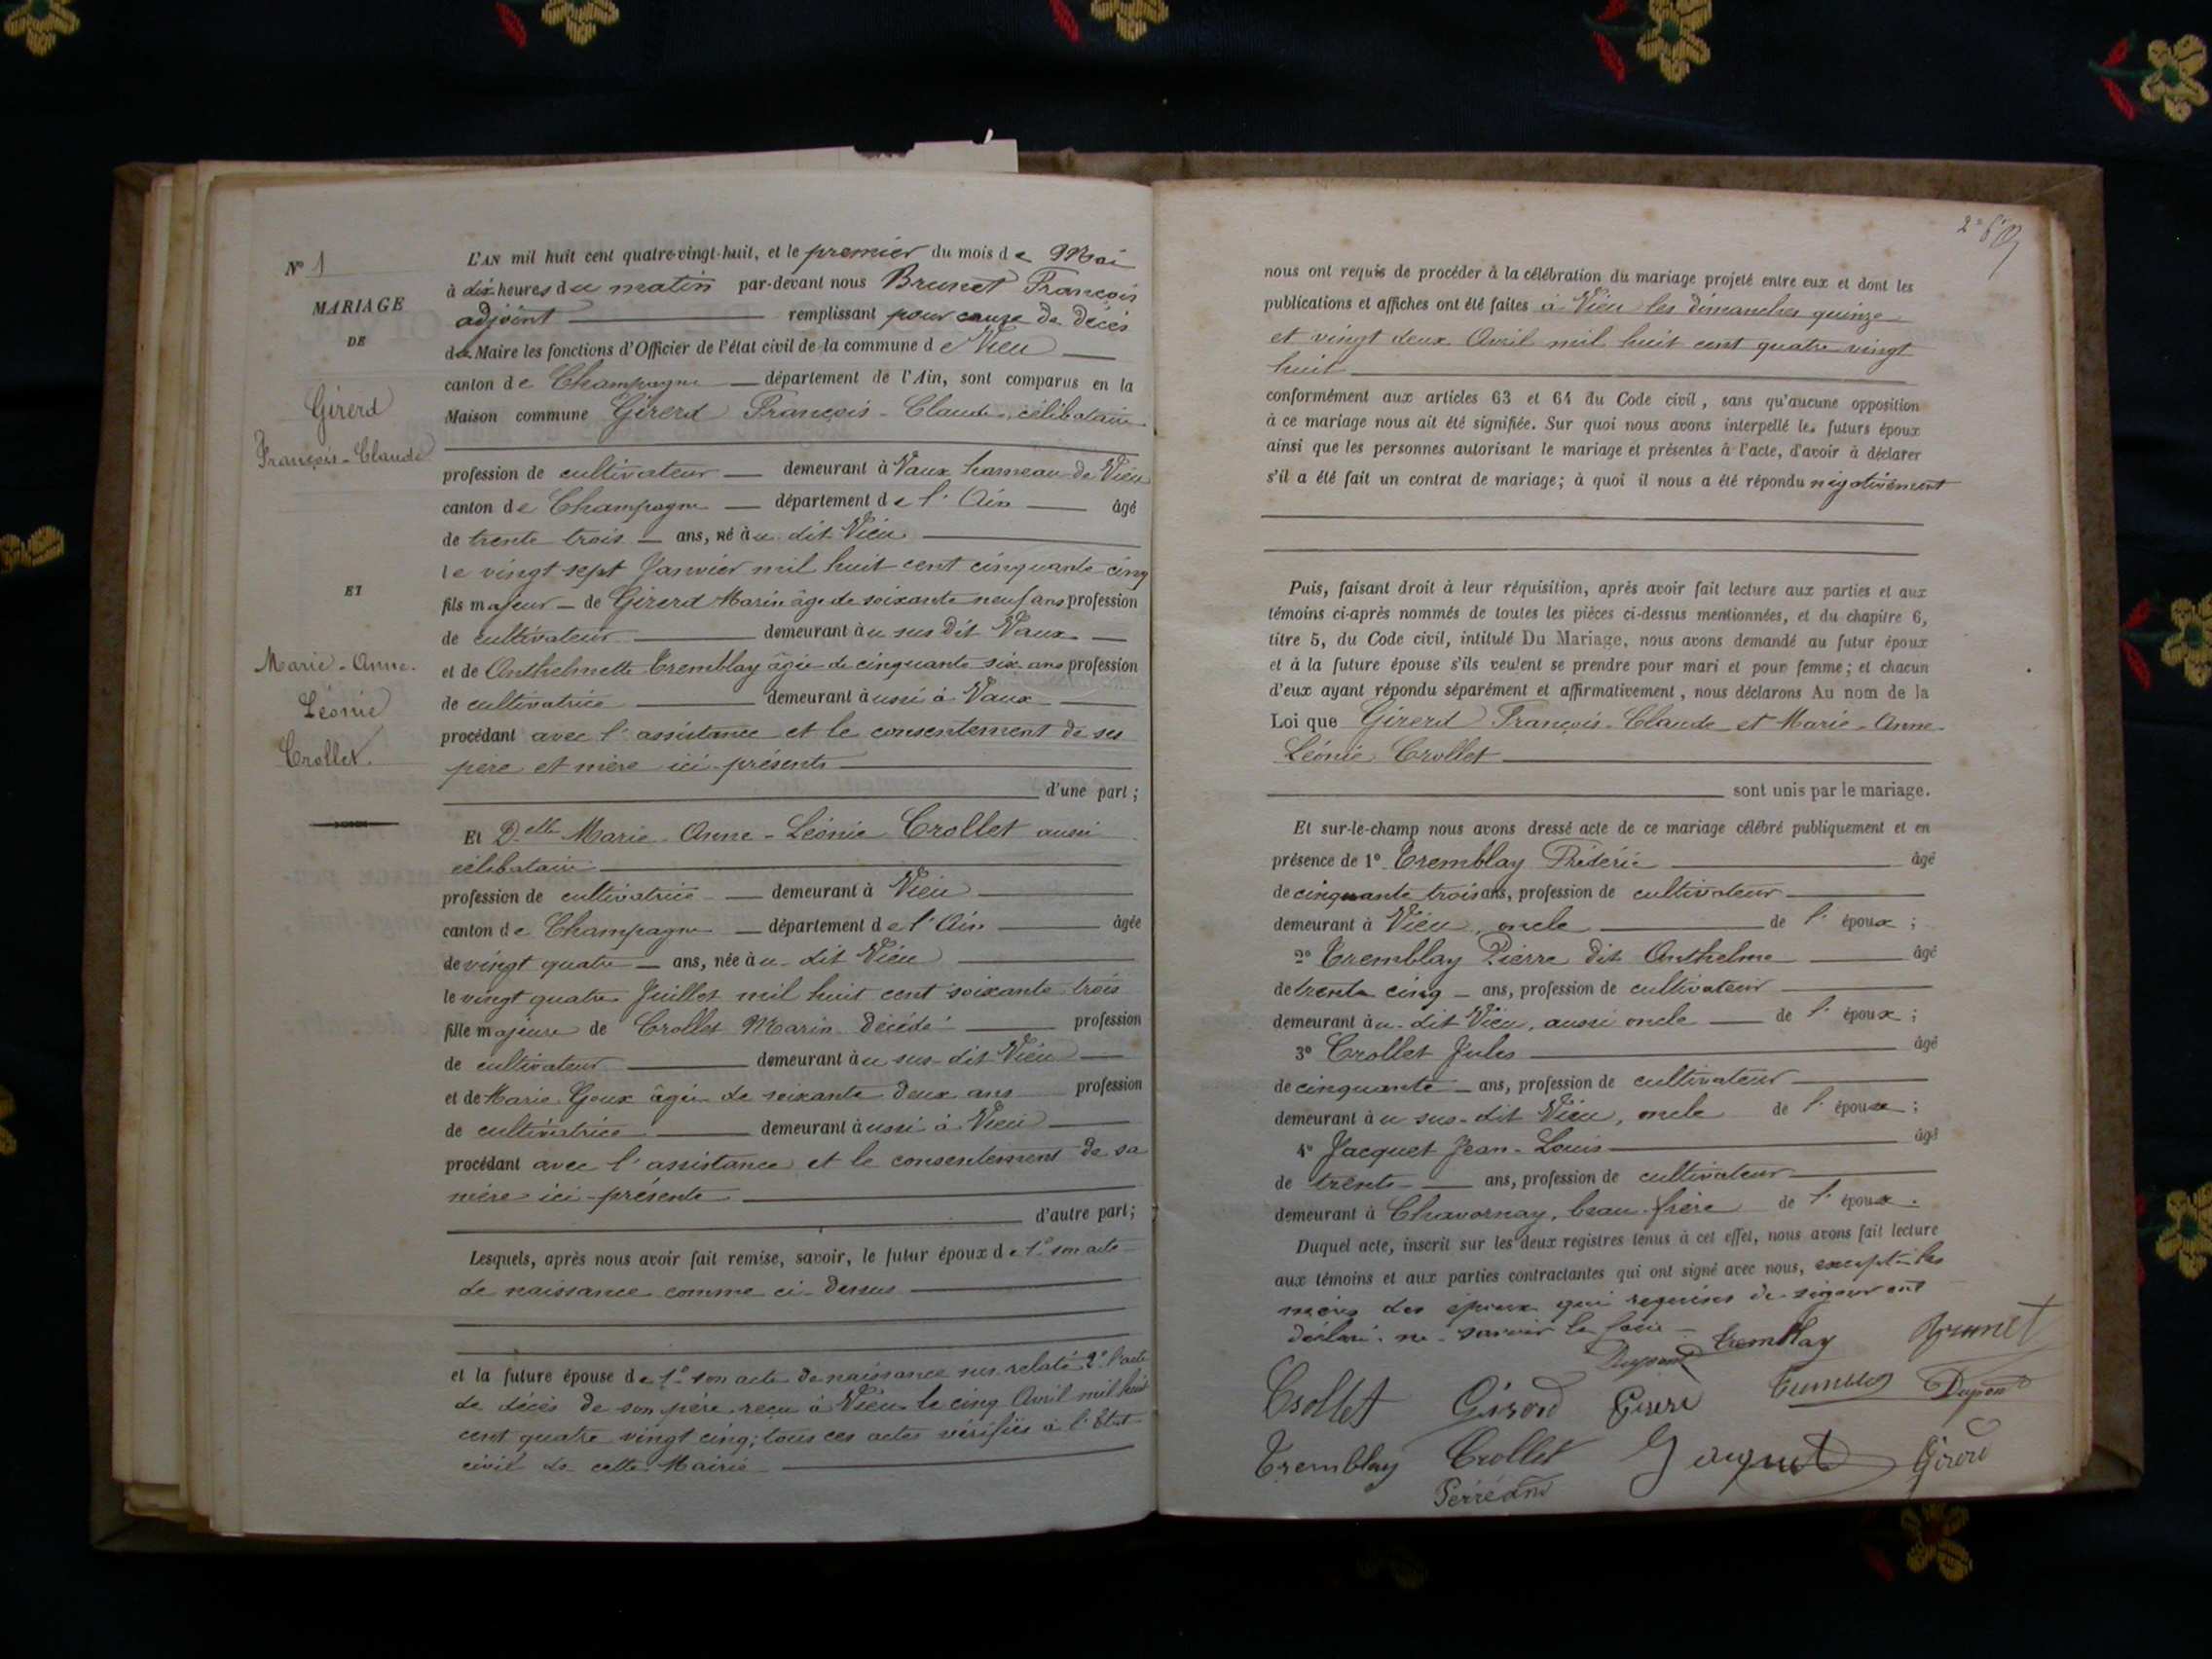 N° 1
MARIAGE
DE
Girerd
François-Claude
ET
Marie-Anne-
Léonie
Crollet.
L'AN mil huit cent quatre-vingt-huit, et le premier du mois de Mai
à dix heures du matin par-devant nous Brunet François
adjoint remplissant pour cause de décès
de Maire les fonctions d'Officier de l'état civil de la commune de Vieu
canton de Champagne département de l'Ain, sont comparus en la
Maison commune Girerd François-Claude, célibataire
profession de cultivateur demeurant à Vaux hameau de Vieu
canton de Champagne département de l'Ain âgé
de trente trois ans, né au dit Vieu
le vingt sept Janvier mil huit cent cinquante cinq
fils majeur de Girerd Marin âgé de soixante neuf ans profession
de cultivateur demeurant au sus dit Vaux
et de Anthelmette Tremblay âgée de cinquante six ans profession
de cultivatrice demeurant aussi à Vaux
procédant avec l'assistance et le consentement de ses
père et mère ici présents
d'une part;
Et Delle Marie-Anne-Léonie Crollet aussi
célibataire
profession de cultivatrice demeurant à Vieu
canton de Champagne département de l'Ain âgée
de vingt quatre ans, née au dit Vieu
le vingt quatre Juillet mil huit cent soixante trois
fille majeure de Crollet Marin décédé profession
de cultivateur demeurant au sus-dit Vieu
et de Marie Goux âgée de soixante deux ans profession
de cultivatrice demeurant aussi à Vieu
procédant avec l'assistance et le consentement de sa
mère ici-présente
d'autre part;
Lesquels, après nous avoir fait remise, savoir, le futur époux de 1° son acte
de naissance comme ci-dessus
et la future épouse de 1° son acte de naissance sus relaté 2° l'acte
de décès de son père reçu à Vieu le cinq Avril mil huit
cent quatre vingt cinq; tous ces actes vérifiés à l'État
civil de cette Mairie
nous ont requis de procéder à la célébration du mariage projeté entre eux et dont les
publications et affiches ont été faites à Vieu les dimanches quinze
et vingt deux Avril mil huit cent quatre vingt
huit
conformément aux articles 63 et 64 du Code civil, sans qu'aucune opposition
à ce mariage nous ait été signifiée. Sur quoi nous avons interpellé les futurs époux
ainsi que les personnes autorisant le mariage et présentes à l'acte, d'avoir à déclarer
s'il a été fait un contrat de mariage; à quoi il nous a été répondu négativement
Puis, faisant droit à leur réquisition, après avoir fait lecture aux parties et aux
témoins ci-après nommés de toutes les pièces ci-dessus mentionnées, et du chapitre 6,
titre 5, du Code civil, intitulé Du Mariage, nous avons demandé au futur époux
et à la future épouse s'ils veulent se prendre pour mari et pour femme; et chacun
d'eux ayant répondu séparément et affirmativement, nous déclarons Au nom de la
Loi que Girerd François-Claude et Marie-Anne-
Léonie Crollet
sont unis par le mariage.
Et sur-le-champ nous avons dressé acte de ce mariage célébré publiquement et en
présence de 1° Tremblay Frédéric âgé
de cinquante trois ans, profession de cultivateur
demeurant à Vieu, oncle de l'époux;
2° Tremblay Pierre dit Anthelme âgé
de trente cinq ans, profession de cultivateur
demeurant au-dit Vieu, aussi oncle de l'époux;
3° Crollet Jules âgé
de cinquante ans, profession de cultivateur
demeurant au sus-dit Vieu, oncle de l'épouse;
4° Jacquet Jean-Louis âgé
de trente ans, profession de cultivateur
demeurant à Chavornay, beau-frère de l'époux.
Duquel acte, inscrit sur les deux registres tenus à cet effet, nous avons fait lecture
aux témoins et aux parties contractantes qui ont signé avec nous, excepté les
mères des époux qui requises de signer ont
déclaré ne savoir le faire
Tremblay Brunet
Dupont
Crollet Girod Girerd Dupont
Tremblay Crollet Jacquet Girod